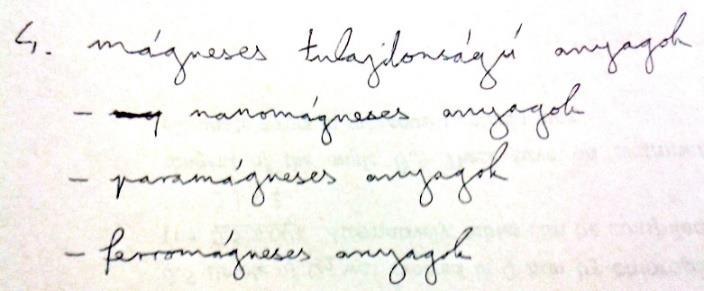 4. mágneses tulajdonságú anyagok
- nanomágneses anyagok
- paramágneses anyagok
- ferromágneses anyagok